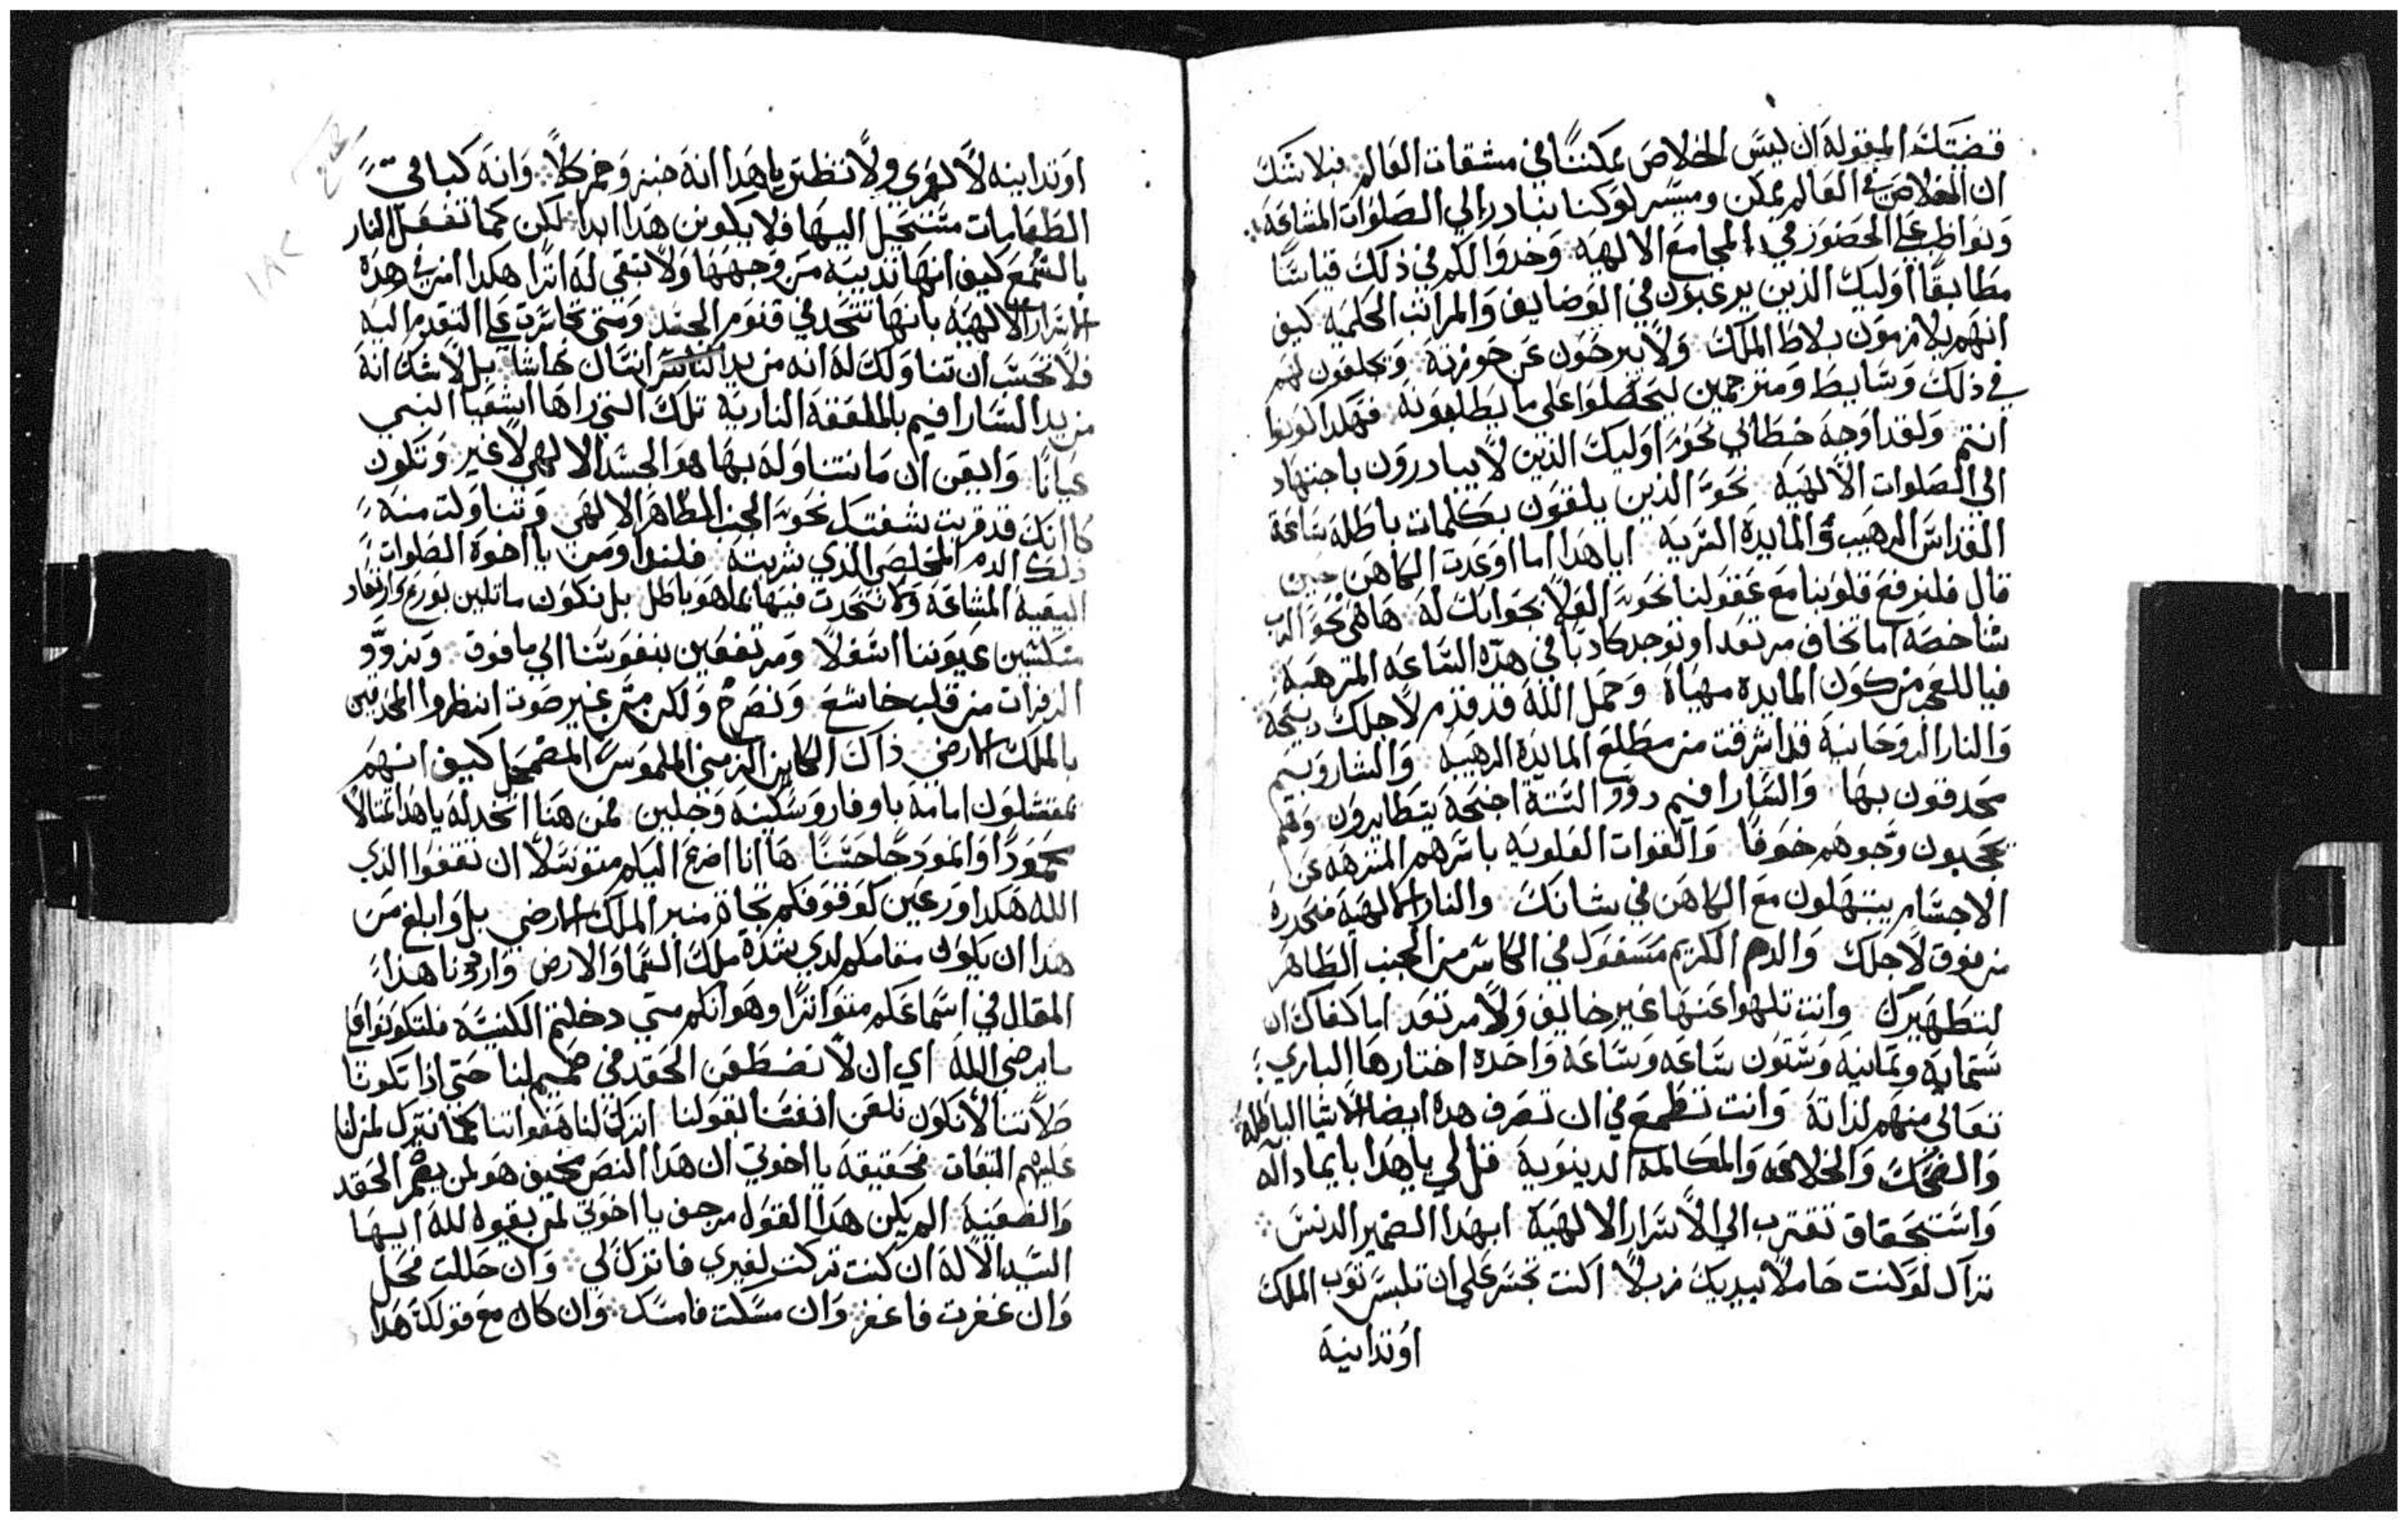 قضتك المقوله ان ليس الخلاص ممكننًا في مشقات العالم فبلا شك
ان الخلاص في العالم ممكن وميسر لو كنا نبادر الي الصلوات المشاعة
ونواظب علي الحضور في المجامع الالهيه وخدوا لكم في ذلك قياسًا
مطابقًا اوليك الذين يرغبون في الوضايف والمراتب الحلميه كيف
انهم يلازمون بلاط الملك ولا يبرحون عن حوزته ويكلفون لهم
في ذلك وسايط ومترجمين ليحصلوا على ما يطلبونه فهكدا كونوا
انتم ولقد اوجه خطابي نحو اوليك الذين لا يبادرون باجتهاد
الي الصلوات الالهية نحو الذين يلقون بكلمات باطله ساعة
القداس الرهيب والمايدة السرية ايا هدا اما اوعدت الكاهن حين
قال فلنرفع قلوبنا مع عقولنا نحو العلا بجوابك له ها هي نحو الرب
شاخصه اما تخاف مرتعدا وتوجد كادبًا في هده الساعه المترهبة
فيا للعجب من كون المايدة مهياة وحمل الله قد قدم لاجلك ديبحة
والنار الروحانية قد اشرقت من مطلع المايدة الرهيبة والشاروبيم
محدقون بها والسارافيم دوو الستة اجنحة يتطايرون وهم
يحجبون وجوههم خوفًا والقوات العلويه باسرهم المتنزهه عن
الاجسام يبتهلون مع الكاهن في شانك والنار الالهية منحدرة
من فوق لاجلك والدم الكريم مسفوك في الكاس من الجنب الطاهر
لتطهيرك وانت تلهوا عنها غير خايف ولا مرتعد اما كفاك ان
ستمايه وتمانية وستون ساعه وساعة واحدة اختارها الباري
تعالي منهم لذاتة وانت تطمع في ان تصرف هده ايضا الاشيا الباطلة
والضحك والخلاعه والمكالمة الدينوية قل لي يا هدا بايماد اله
واستحقاق تقترب الي الاسرار الالهية ابهدا الضمير الدنس
تراك لو كنت حاملاً بيديك زبلاً اكنت تجسر علي ان تلبس توب الملك
اوتدانيه
اوتدانيه لا لعمري ولا تظنن يا هدا انه خبز وخمر كلا وانه كباقي
الطعامات مستحيل اليها فلا يكونن هدا ابدا لكن كما تفعل النار
بالشمع كيف انها تديبه من وجهها ولا تبقي له اترًا هكدا افن في هده
الاسرار الالهيه بانها تتحد في قنوم الجسد ومتي تجاسرت علي التقدم اليه
فلا تحسب ان تناولك له انه من يد انسان تحاشا بل لا شك انه
من يد السارافيم بالملعقة النارية تلك التي راها اشعيا النبي
عيانًا وايقن ان ما نتناوله بها هو الجسد الالهي لا غير وتكون
كانك قد قربت بشفتيك نحو الجنب الطاهر الالهي وتناولت منه
دلك الدم المخلص الدي شربته فلنداومن يا اخوة الصلوات
البيعية المشاعة ولا نتحدت فيها بما هو باطل بل نكون ماتلين بورع وارتعاد
منكسين عيوننا اسفلا ومرتفعين بنفوسنا الي ما فوق ونردد
الزفرات من قلب خاشع ونصرخ ولكن من غير صوت انظروا المحدقين
بالملك الارضي داك الكاين الزمني الملموس المضمحل كيف انهم
يمتتلون امامة باوقار وسكينه وجلين فمن هنا اتخد له يا هدا تمتالا
محمودًا وانمودجًا حسنًا ها انا اضرع اليكم متوسلا ان تقفوا لدي
الله هكدا ورعين كوقوفكم تجاة منبر الملك الارضي بل وابلغ من
هدا ان يكون مقامكم لدي سدة ملك السما والارض واردنا هدا
المقال في اسماعكم متواترًا وهو انكم متي دخلتم الكنيسة فلتكونوا كما
يرضي الله اي ان لا نضطغن الحقد في صميم لبنا حتي ادا تلونا
صلاتنا لا نكون نلعن انفسنا بقولنا اترك لنا هفواتنا كما نترك لمن لنا
عليهم التبعات فحقيقة يا اخوتي ان هدا النص مخيف هو لمن يضمر الحقد
والضغينة الم يكن هدا القول مرجف يا اخوتي لمن يقوله لله ايها
السيد الاله ان كنت تركت لغيري فاترك لي وان حللت فحل
وان غفرت فاغفر وان مسكت فامسك وان كان مع قولك هدا